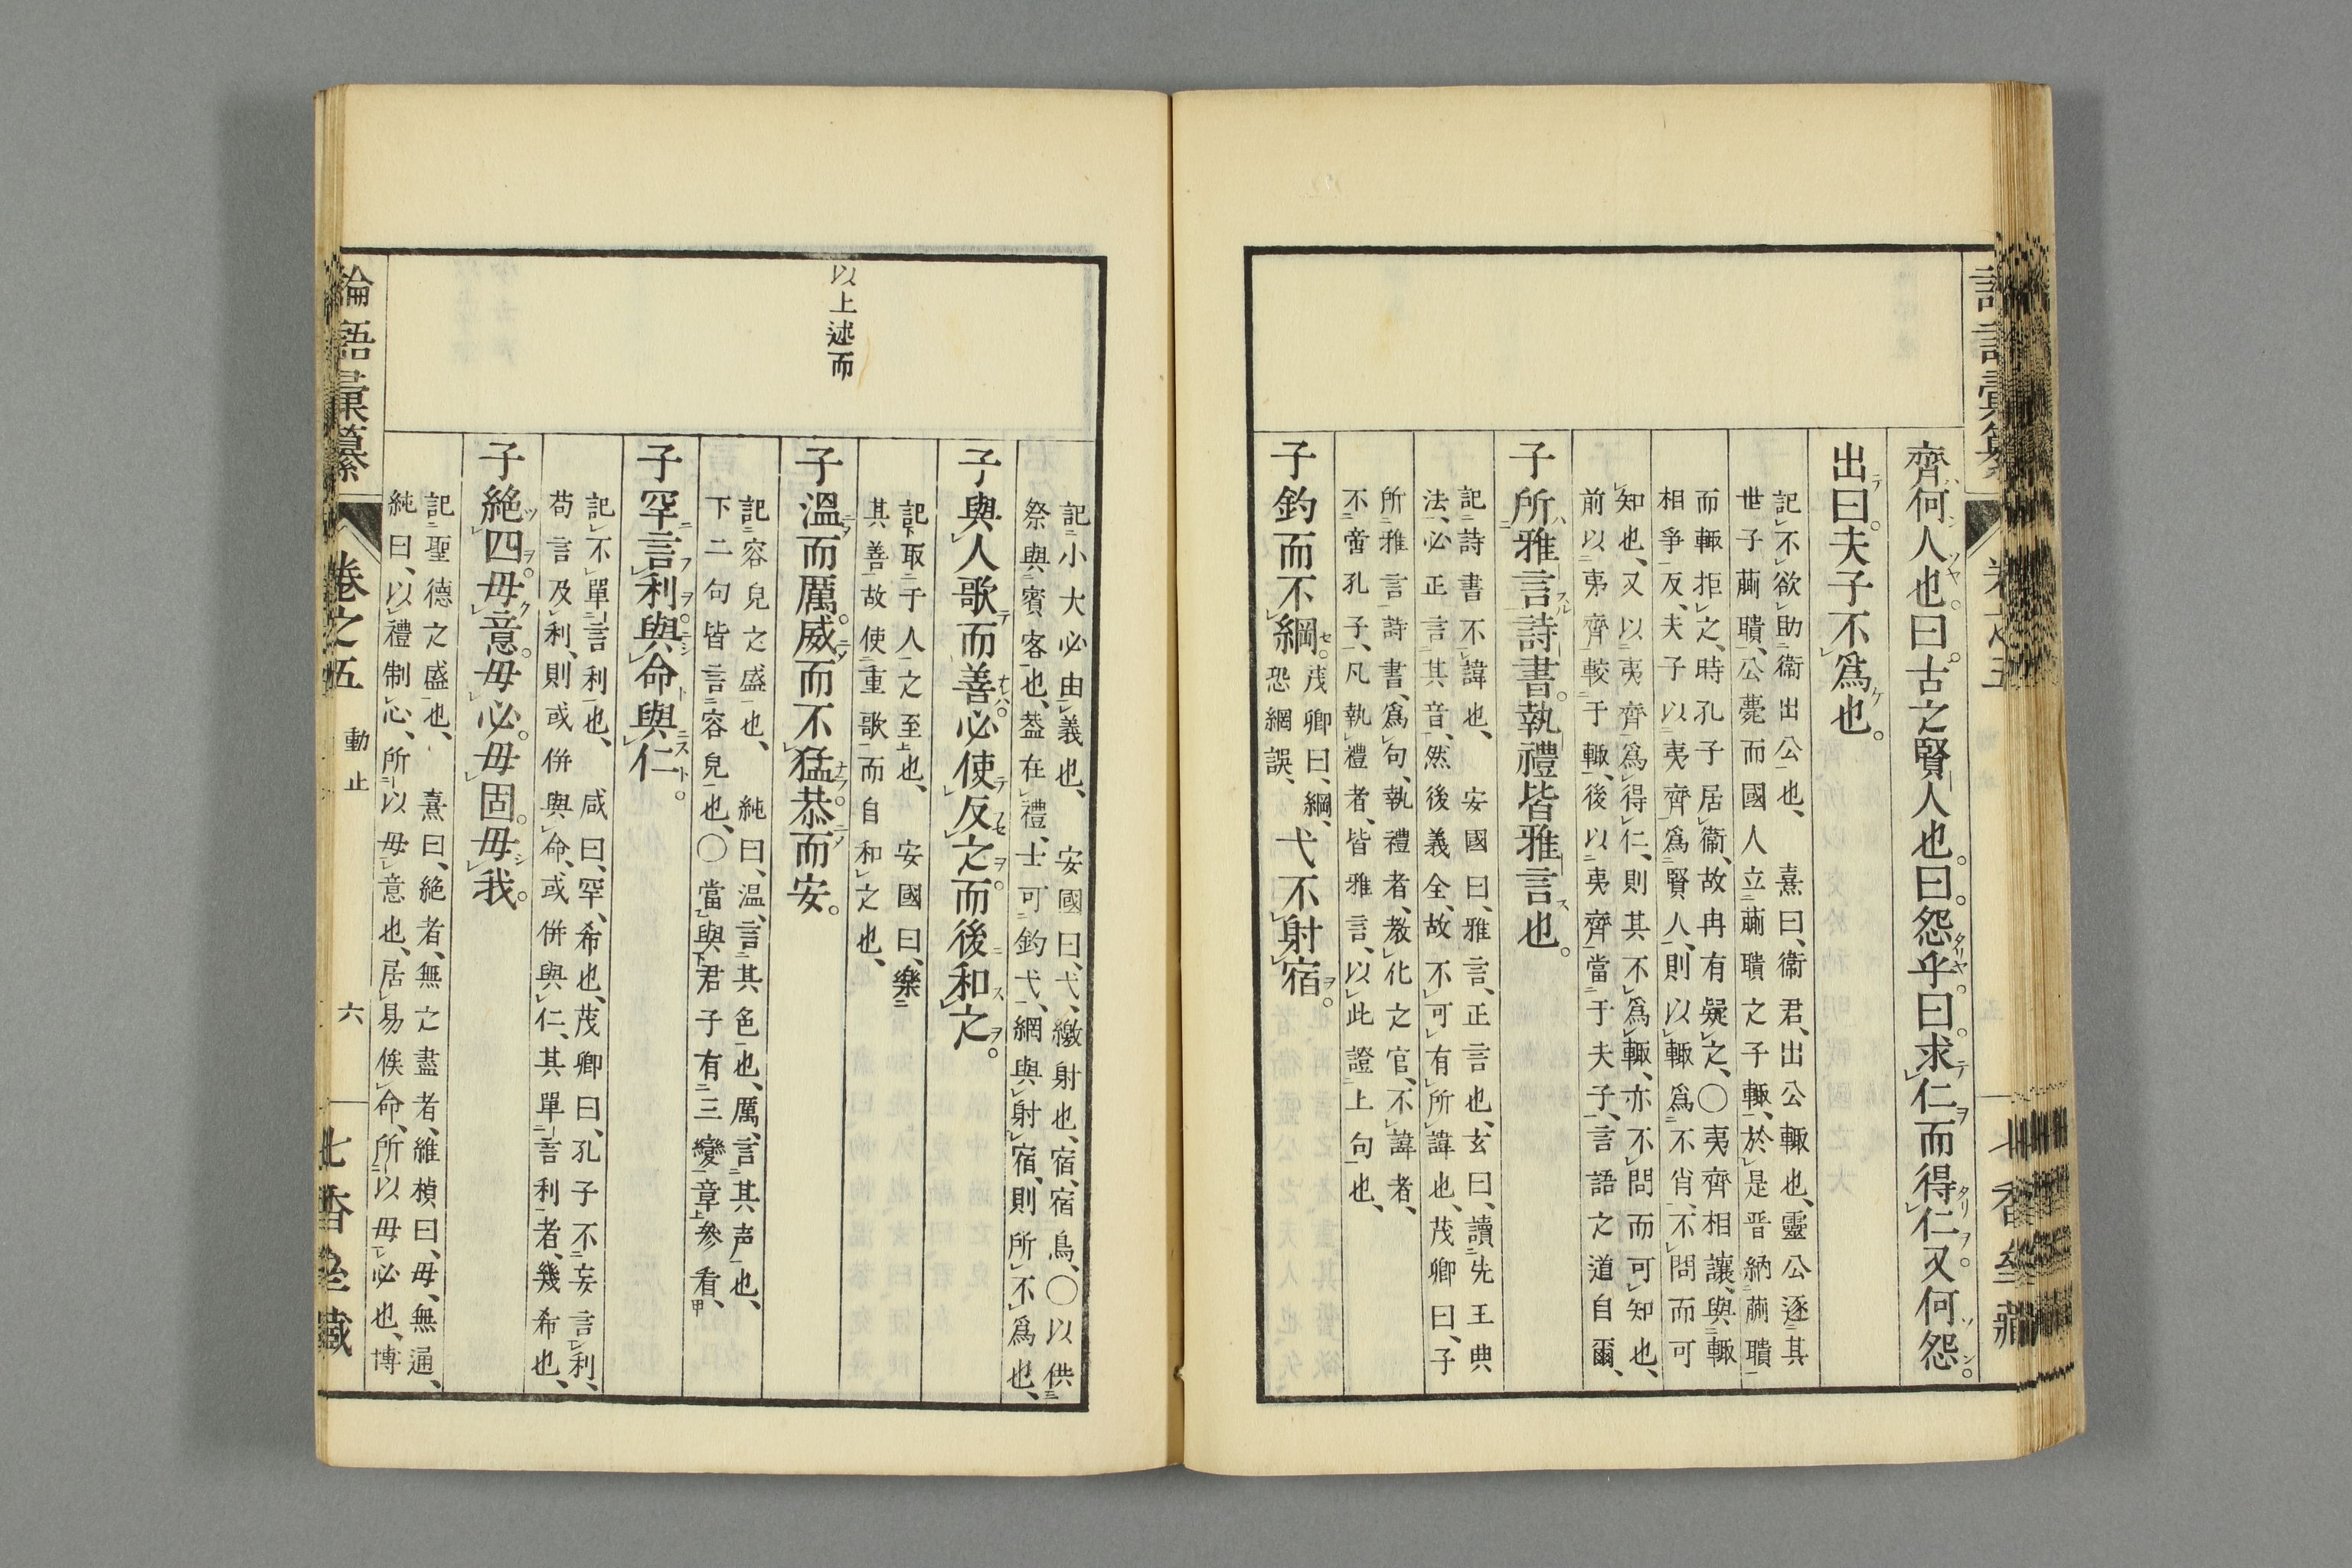 齊何人也。曰。古之賢人也。曰。怨乎。曰。求仁而得仁。又何怨。
出曰。夫子不爲也。
記不欲助衛出公也、熹曰、衞君、出公輒也、靈公逐其
世子蒯聵、公薨而國人立蒯聵之子輒、於是晋納蒯聵
而輒拒之、時孔子居衞、故冉有疑之、〇夷齊相讓、與輒
相爭反、夫子以夷齊爲賢人、則以輒爲不肖、不問而可
知也、又以夷齊爲得仁、則其不爲輒、亦不問而可知也、
前以夷齊較于輒、後以夷齊當于夫子、言語之道自爾、
子所雅言。詩書。執禮皆雅言也。
記詩書不諱也、安國曰、雅言、正言也、玄曰、讀先王典
法、必正言其音、然後義全、故不可有所諱也、茂卿曰、子
所雅言詩書、爲句、執禮者、敎化之官、不諱者、
不啻孔子、凡執禮者、皆雅言、以此證上句也、
子釣而不綱。茂卿曰、綱、恐網誤、弋不射宿。
記小大必由義也、安國曰、弋、繳射也、宿、宿鳥、〇以供
祭與賓客也、葢在禮、士可釣弋、網與射宿、則所不爲也、
子與人歌而善。必使反之。而後和之。
記取于人之至也、安國曰、樂
其善、故使重歌而自和之也、
以上述而
子溫而厲。威而不猛。恭而安。
記容皃之盛也、純曰、温、言其色也、厲、言其声也、
下二句皆言容皃也、〇當與君子有三變章参看、
子罕言利。與命與仁。
記不單言利也、咸曰、罕、希也、茂卿曰、孔子不妄言利、
苟言及利、則或併與命、或併與仁、其單言利者、幾希也、
子絶四。毋意。毋必。毋固。毋我。
記聖德之盛也、熹曰、絶者、無之盡者、維楨曰、毋、無通、
純曰、以禮制心、所以毋意也、居易俟命、所以毋必也、博
論語彙纂 卷之五 動止 六